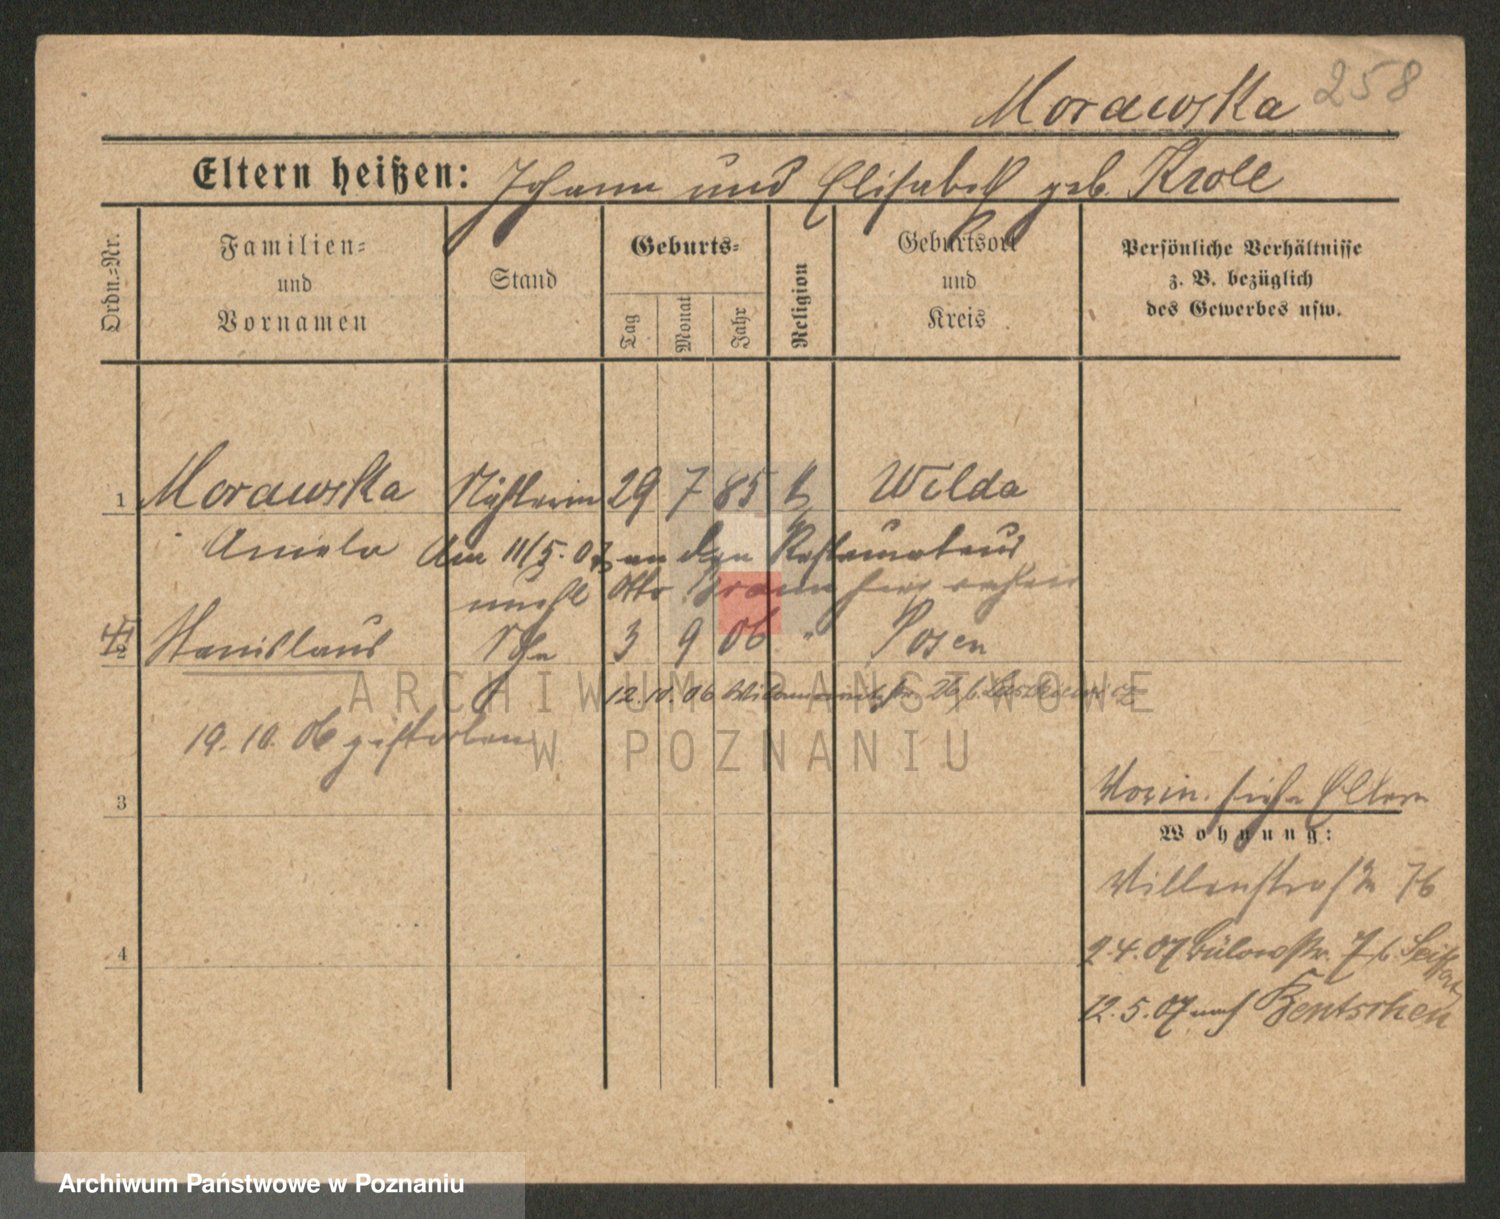 258
Morawska
Eltern heißen: Johann und Elisabeth geb. Kroll
Ordn.=Nr.
Familien=
und
Vornamen
Stand
Geburts=
Tag
Monat
Jahr
Religion
Geburtsort
und
Kreis
Persönliche Verhältnisse
z. B. bezüglich
des Gewerbes usw.
1 Morawska Nähterin 29 7 85 k Wilda
Aniela Am 11/5. 07 an den Restaurateur
Otto Braun
+ 2 Stanislaus Sohn 3 9 06 " Posen
12.10.06
19.10.06 gestorben
3
Vorin. siehe Eltern
Wohnung:
Villenstraße 76
4
2.4.07 Bülowstr. 7 b. Seiffert
12.5.07 nach Bentschen
ARCHIWUM PAŃSTWOWE
W POZNANIU
Archiwum Państwowe w Poznaniu